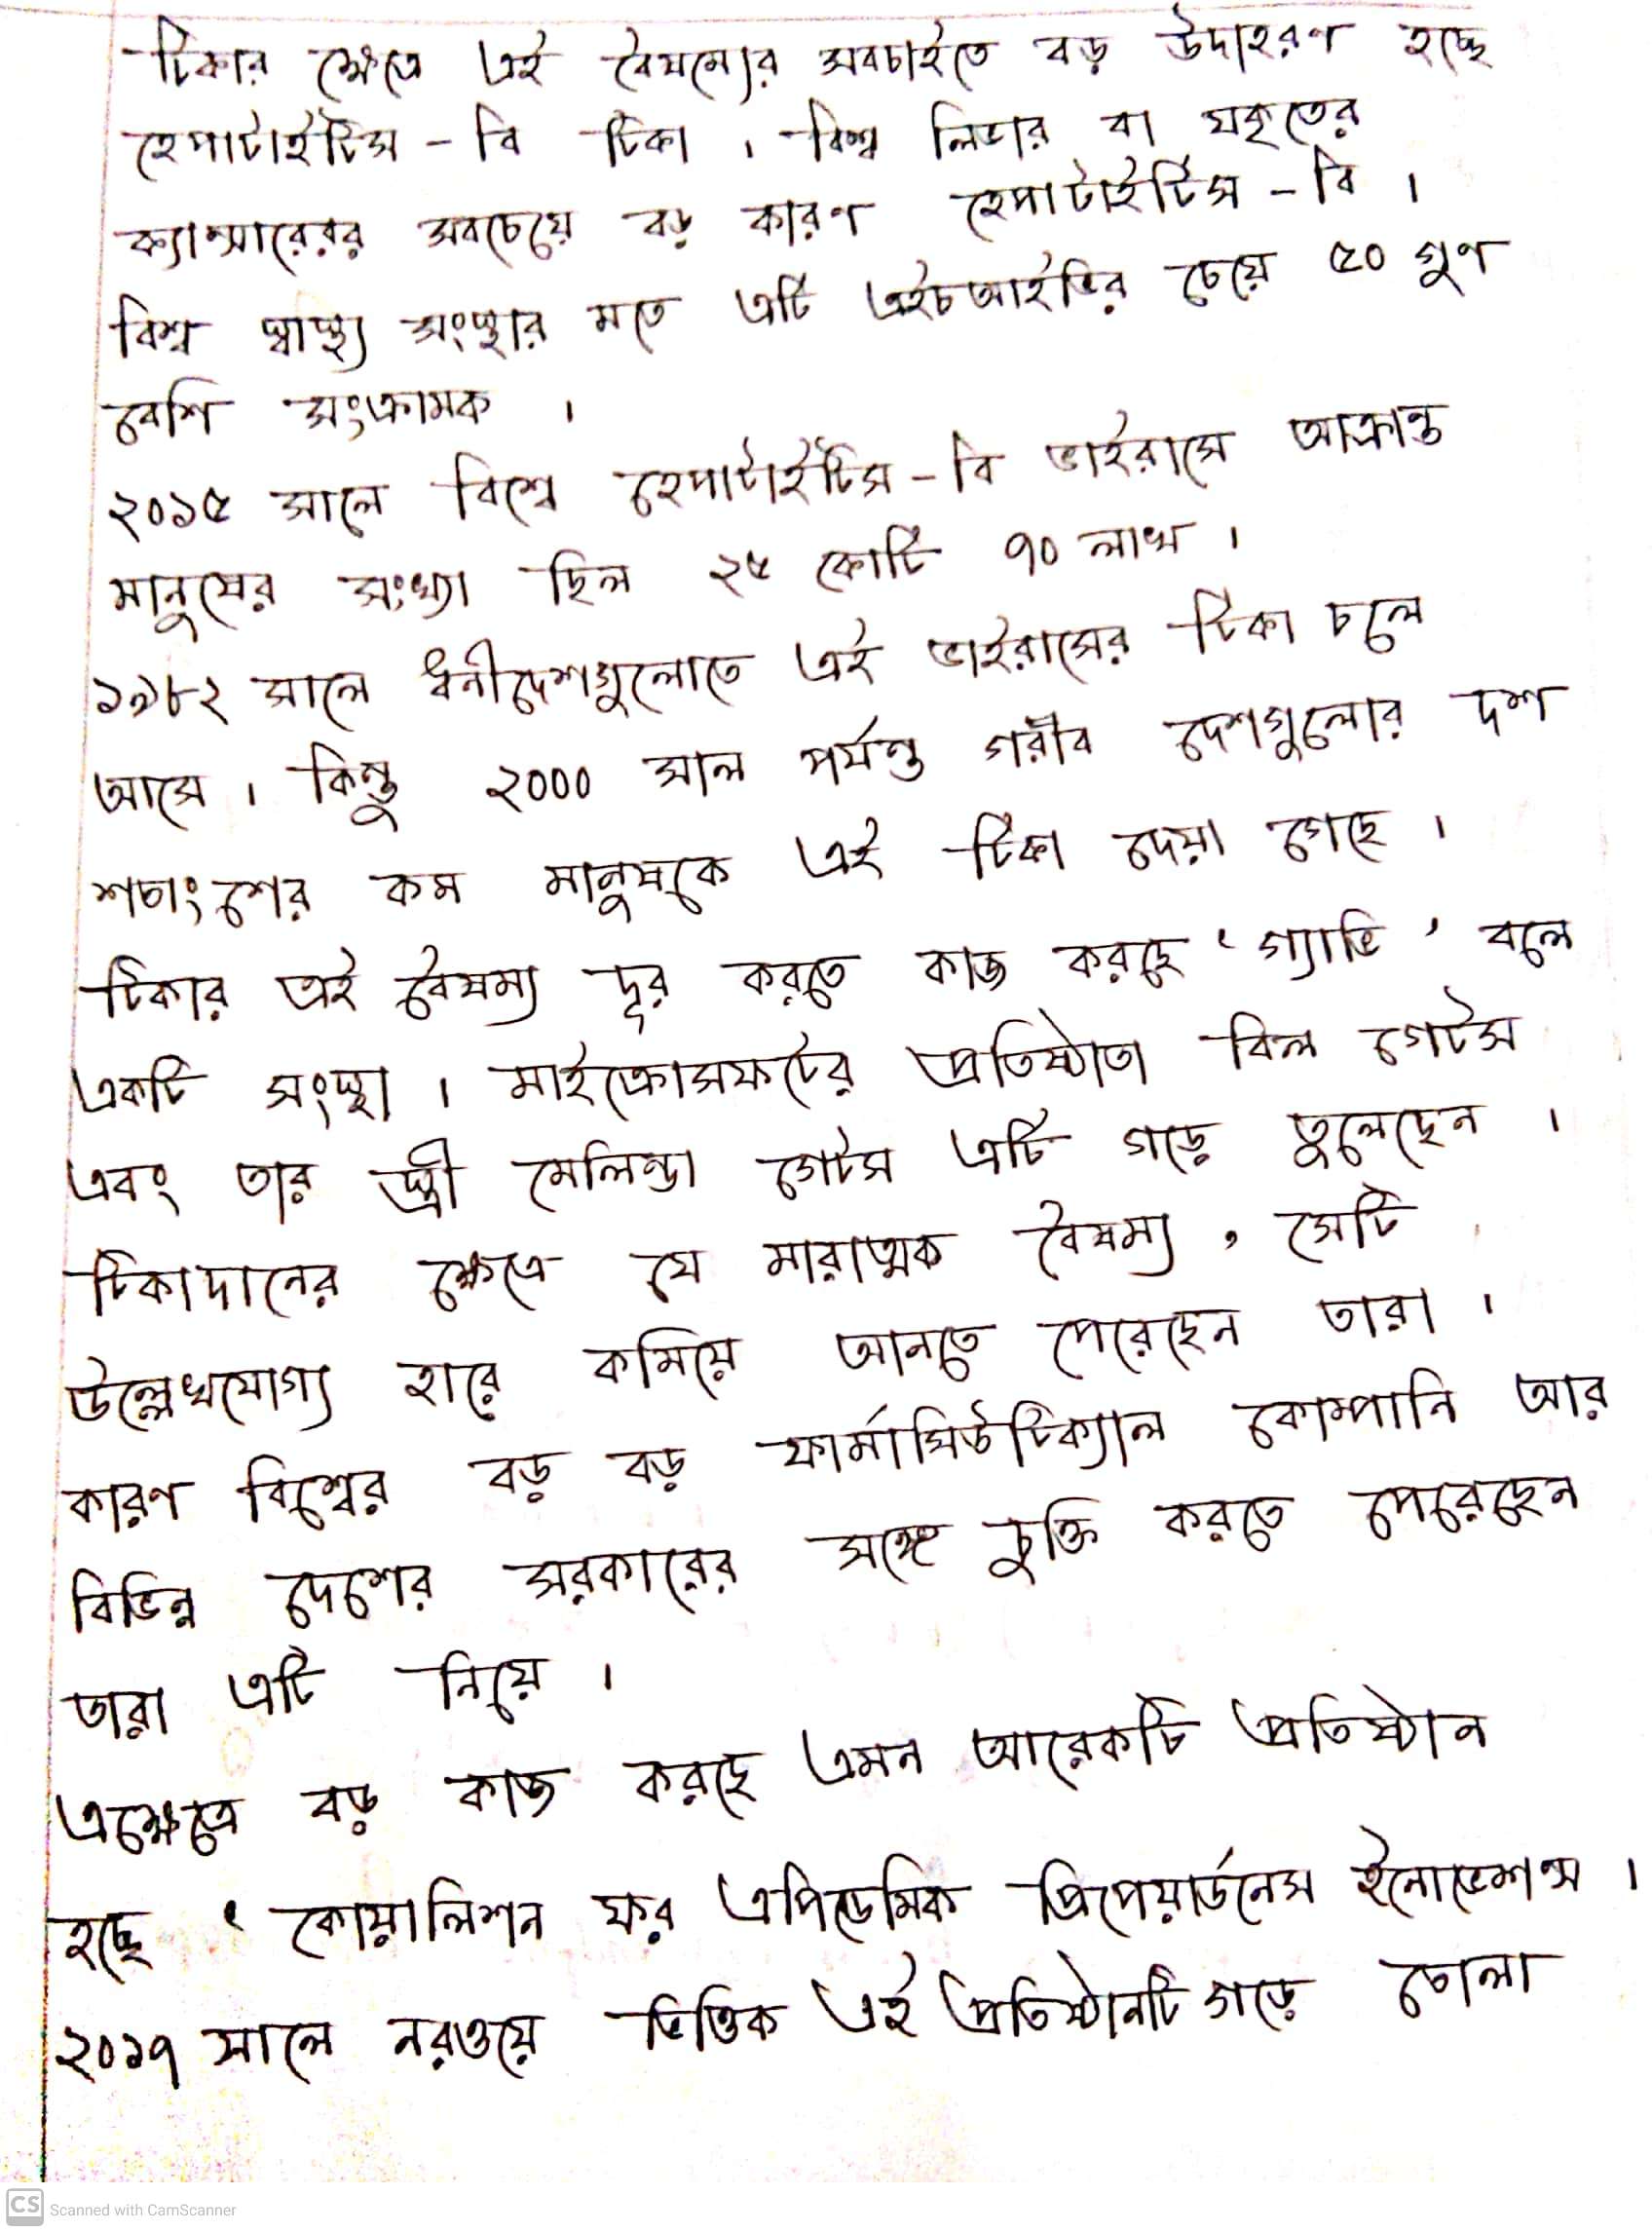 টিকার ক্ষেত্রে এই বৈষম্যের সবচাইতে বড় উদাহরণ হচ্ছে
হেপাটাইটিস - বি টিকা । বিশ্ব লিভার বা যকৃতের
ক্যান্সারেরর সবচেয়ে বড় কারণ হেপাটাইটিস - বি ।
বিশ্ব স্বাস্থ্য সংস্থার মতে এটি এইচআইভির চেয়ে ৫০ গুণ
বেশি সংক্রামক ।
২০১৫ সালে বিশ্বে হেপাটাইটিস - বি ভাইরাসে আক্রান্ত
মানুষের সংখ্যা ছিল ২৫ কোটি ৭০ লাখ ।
১৯৮২ সালে ধনীদেশগুলোতে এই ভাইরাসের টিকা চলে
আসে । কিন্তু ২০০০ সাল পর্যন্ত গরীব দেশগুলোর দশ
শতাংশের কম মানুষকে এই টিকা দেয়া গেছে ।
টিকার এই বৈষম্য দূর করতে কাজ করছে ‘ গ্যাভি ’ বলে
একটি সংস্থা । মাইক্রোসফটের প্রতিষ্ঠাতা বিল গেটস
এবং তার স্ত্রী মেলিন্ডা গেটস এটি গড়ে তুলেছেন ।
টিকাদানের ক্ষেত্রে যে মারাত্মক বৈষম্য , সেটি
উল্লেখযোগ্য হারে কমিয়ে আনতে পেরেছেন তারা ।
কারণ বিশ্বের বড় বড় ফার্মাসিউটিক্যাল কোম্পানি আর
বিভিন্ন দেশের সরকারের সঙ্গে চুক্তি করতে পেরেছেন
তারা এটি নিয়ে ।
এক্ষেত্রে বড় কাজ করছে এমন আরেকটি প্রতিষ্ঠান
হচ্ছে ‘ কোয়ালিশন ফর এপিডেমিক প্রিপেয়ার্ডনেস ইনোভেশন্স ।
২০১৭ সালে নরওয়ে ভিত্তিক এই প্রতিষ্ঠানটি গড়ে তোলা
CS Scanned with CamScanner